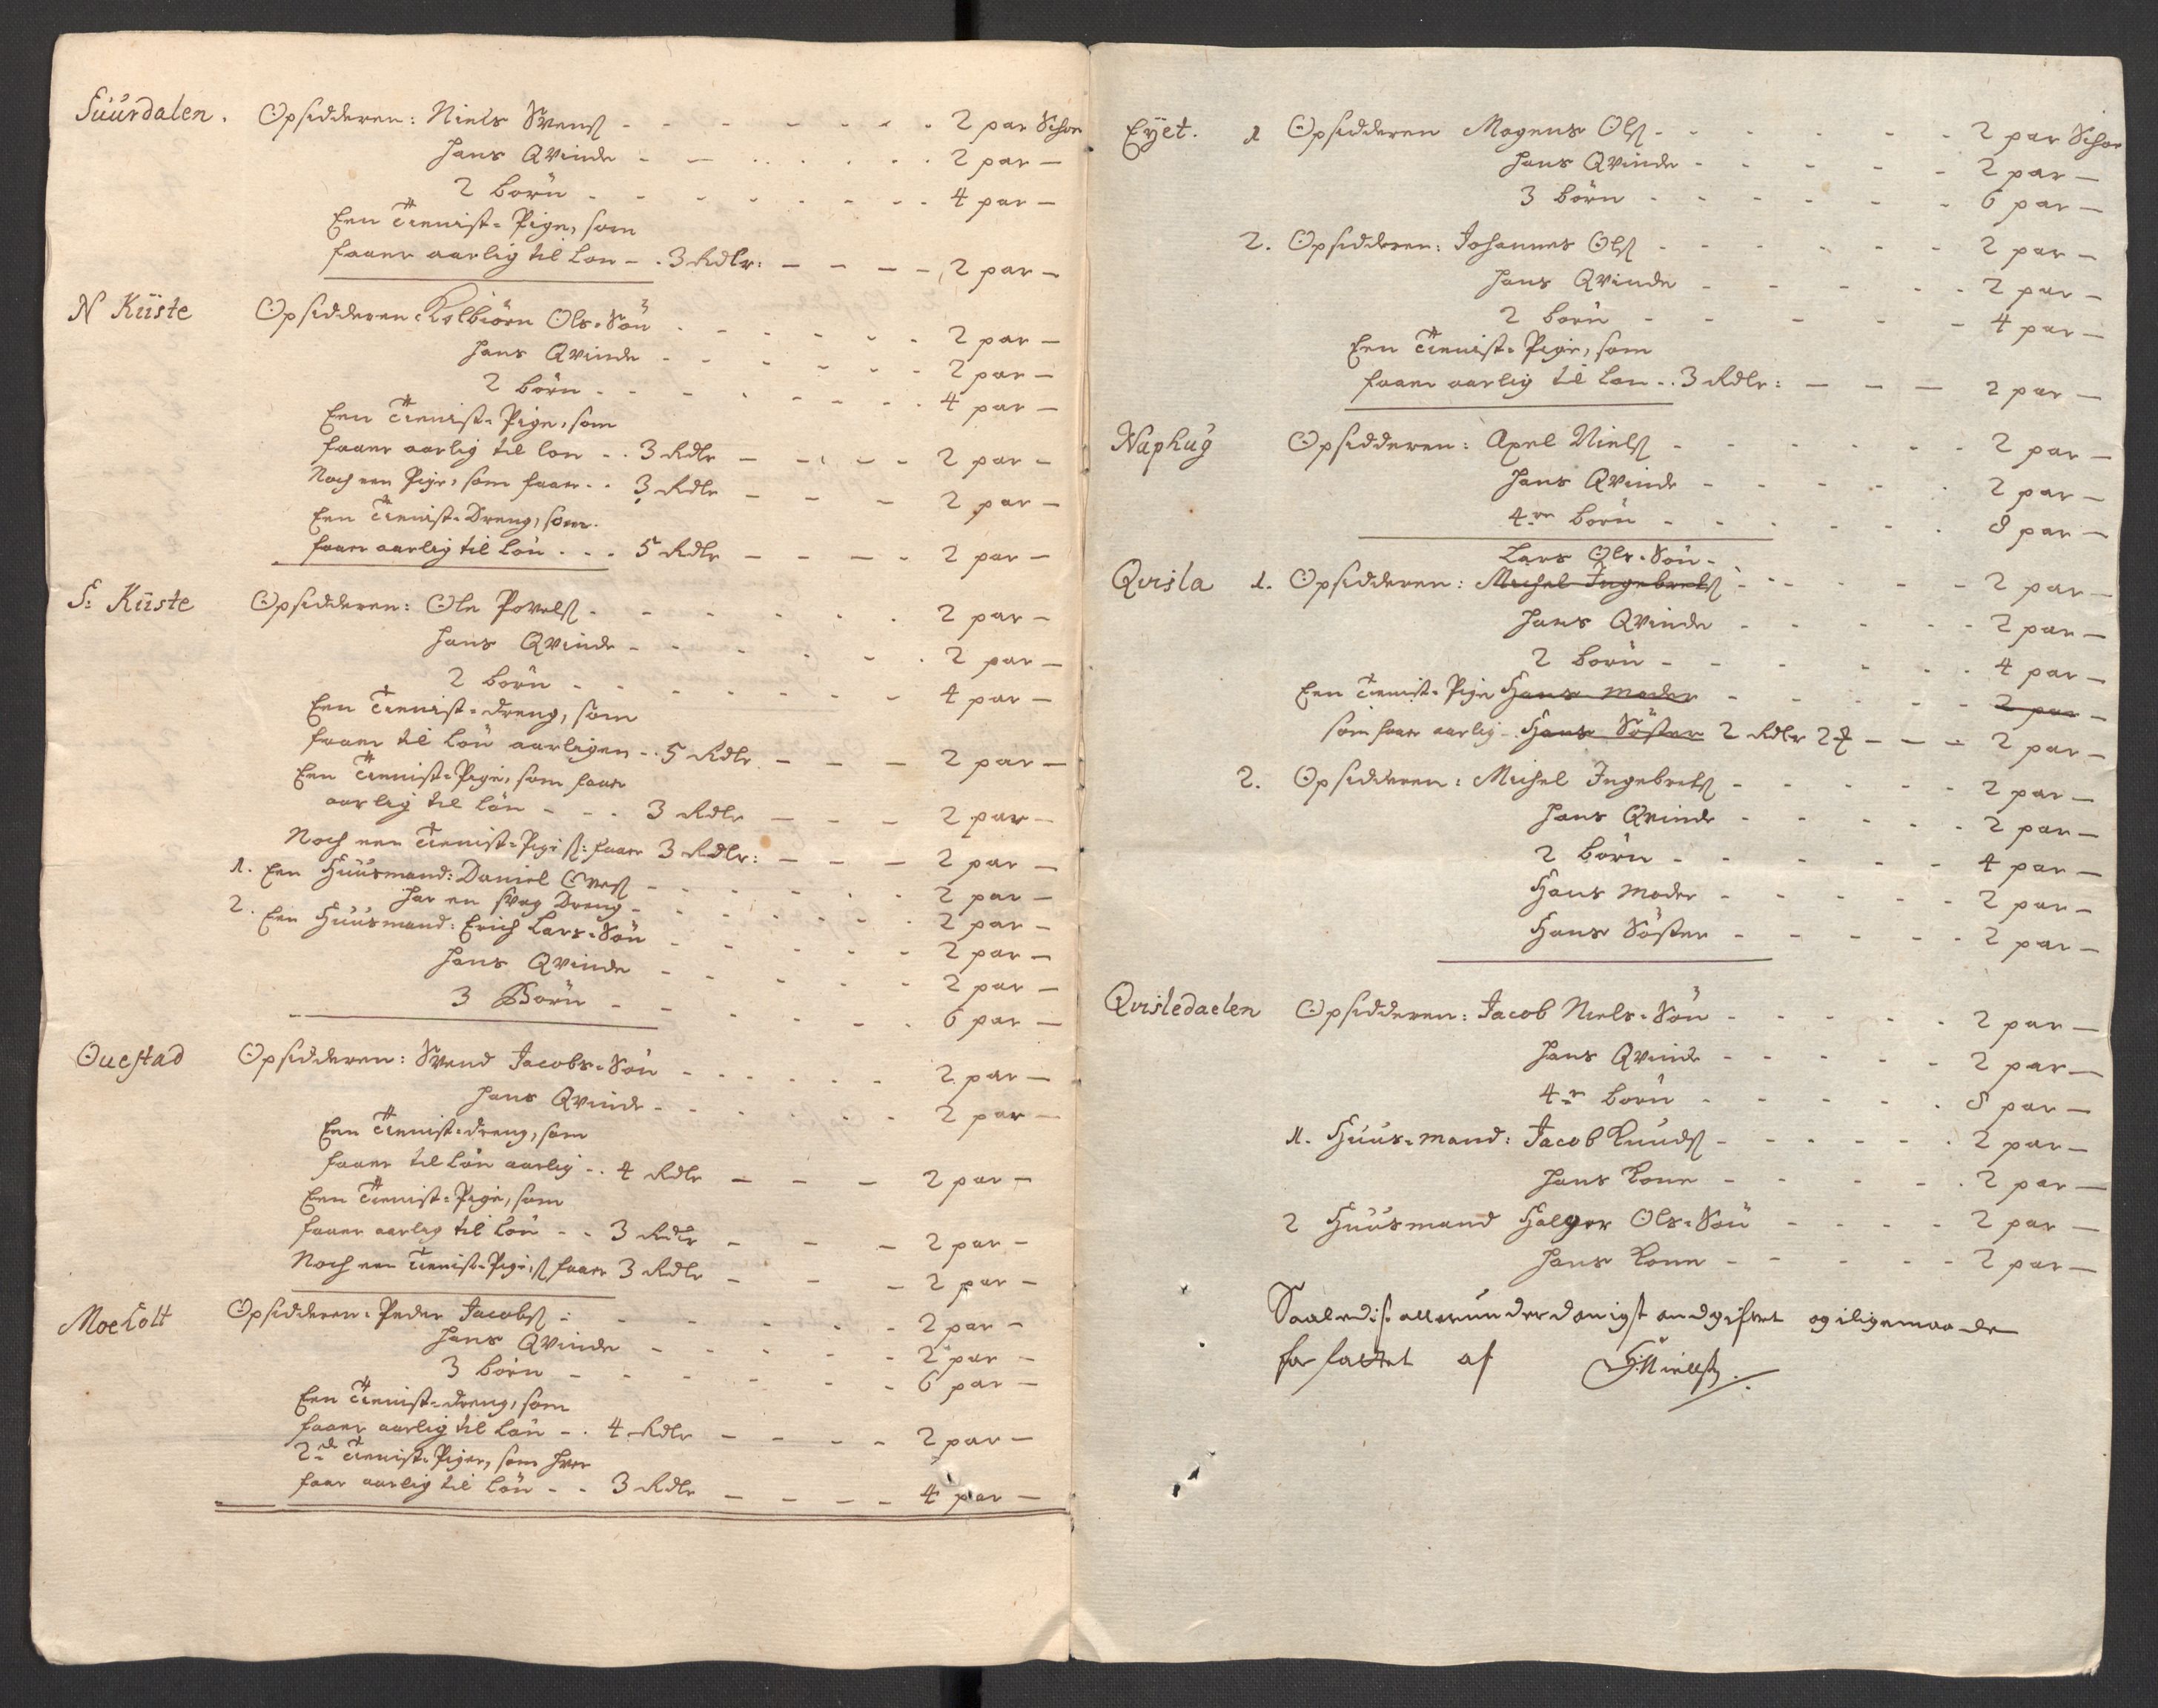 Suurdalen. Opsidderen: Niels Svens. - - - - 2 par Schoe
Hans Qvinde - - - - 2 par —
2 börn - - - - 4 par —
Een Tienist-Pige, som
faaer aarlig til Lön - . 3 Rdlr: - - - - 2 par —
N Kiiste Opsidderen: Kolbiörn Ols-Sön - - - - 2 par —
Hans Qvinde - - - - 2 par —
2 börn - - - - 4 par —
Een Tienist-Pige, som
faaer aarlig til lön - . 3 Rdlr - - - - 2 par —
Noch een Pige, som faaer . . 3 Rdlr - - - 2 par —
Een Tienist-Dreng, som
faaer aarlig til Lön . . . 5 Rdlr - - - - 2 par —
S: Kiiste Opsidderen: Ole Povels. - - - - 2 par —
Hans Qvinde - - - - 2 par —
2 börn - - - - 4 par —
Een Tienist-dreng, som
faaer til Lön aarligen - . 5 Rdlr - - - 2 par —
Een Tienist-Pige, som faaer
aarlig til Lön - - . 3 Rdlr - - - 2 par —
Noch een Tienist-Pige s: faaer 3 Rdlr: - - - 2 par —
1. Een Huusmand: Daniel Oves. - - - - 2 par —
Har en svag Dreng - - - - 2 par —
2. Een Huusmand: Erich Lars-Sön - - - - 2 par —
Hans Qvinde - - - - 2 par —
3 Börn - - - - 6 par —
Ouestad Opsidderen: Svend Jacobs-Sön - - - - 2 par —
Hans Qvinde - - - - 2 par —
Een Tienist-dreng, som
faaer til Lön aarlig . . 4 Rdlr - - - 2 par —
Een Tienist-Pige, som
faaer aarlig til Lön - - 3 Rdlr - - - 2 par —
Noch een Tienist-Pige, s. faaer 3 Rdlr - - - 2 par —
Moeholt Opsidderen: Peder Jacobs. - - - - 2 par —
Hans Qvinde - - - - 2 par —
3 börn - - - - 6 par —
Een Tienist-dreng, som
faaer aarlig til Lön - . 4 Rdlr - - - - 2 par —
2de Tienist-Piger, som hver
faar aarlig til Lön - - 3 Rdlr - - - - 4 par —
Eyet. 1 Opsidderen Mogens Ols. - - - - 2 par Schoe
Hans Qvinde - - - - 2 par —
3 börn - - - - 6 par —
2. Opsidderen: Johannes Ols. - - - - 2 par —
Hans Qvinde - - - - 2 par —
2 börn - - - - 4 par —
Een Tienist-Pige, som
faaer aarlig til Lön . . 3 Rdlr: - - - 2 par —
Naphug Opsidderen: Axel Niels. - - - - 2 par —
Hans Qvinde - - - - 2 par —
4re börn - - - - 8 par —
Lars Ols-Sön -
Qvisla 1. Opsidderen: Michel Ingebrets. - - - - 2 par —
Hans Qvinde - - - - 2 par —
2 börn - - - - 4 par —
Een Tienist-Pige Hans Moder - - - - 2 par —
som faaer aarlig - Hans Söster 2 Rdlr 2 - - - 2 par —
2. Opsidderen: Michel Ingebrets. - - - - 2 par —
Hans Qvinde - - - - 2 par —
2 börn - - - - 4 par —
Hans Moder - - - - 2 par —
Hans Söster - - - - 2 par —
Qvisledaelen Opsidderen: Jacob Niels-Sön - - - - 2 par —
Hans Qvinde - - - - 2 par —
4re börn - - - - 8 par —
1. Huus-mand: Jacob Knuds. - - - - 2 par —
Hans Kone - - - - 2 par —
2 Huusmand Holger Ols-Sön - - - - 2 par —
Hans Kone - - - - 2 par —
Saaledis. allerunderdanigst andgifvet og iligemaade
forfattet af